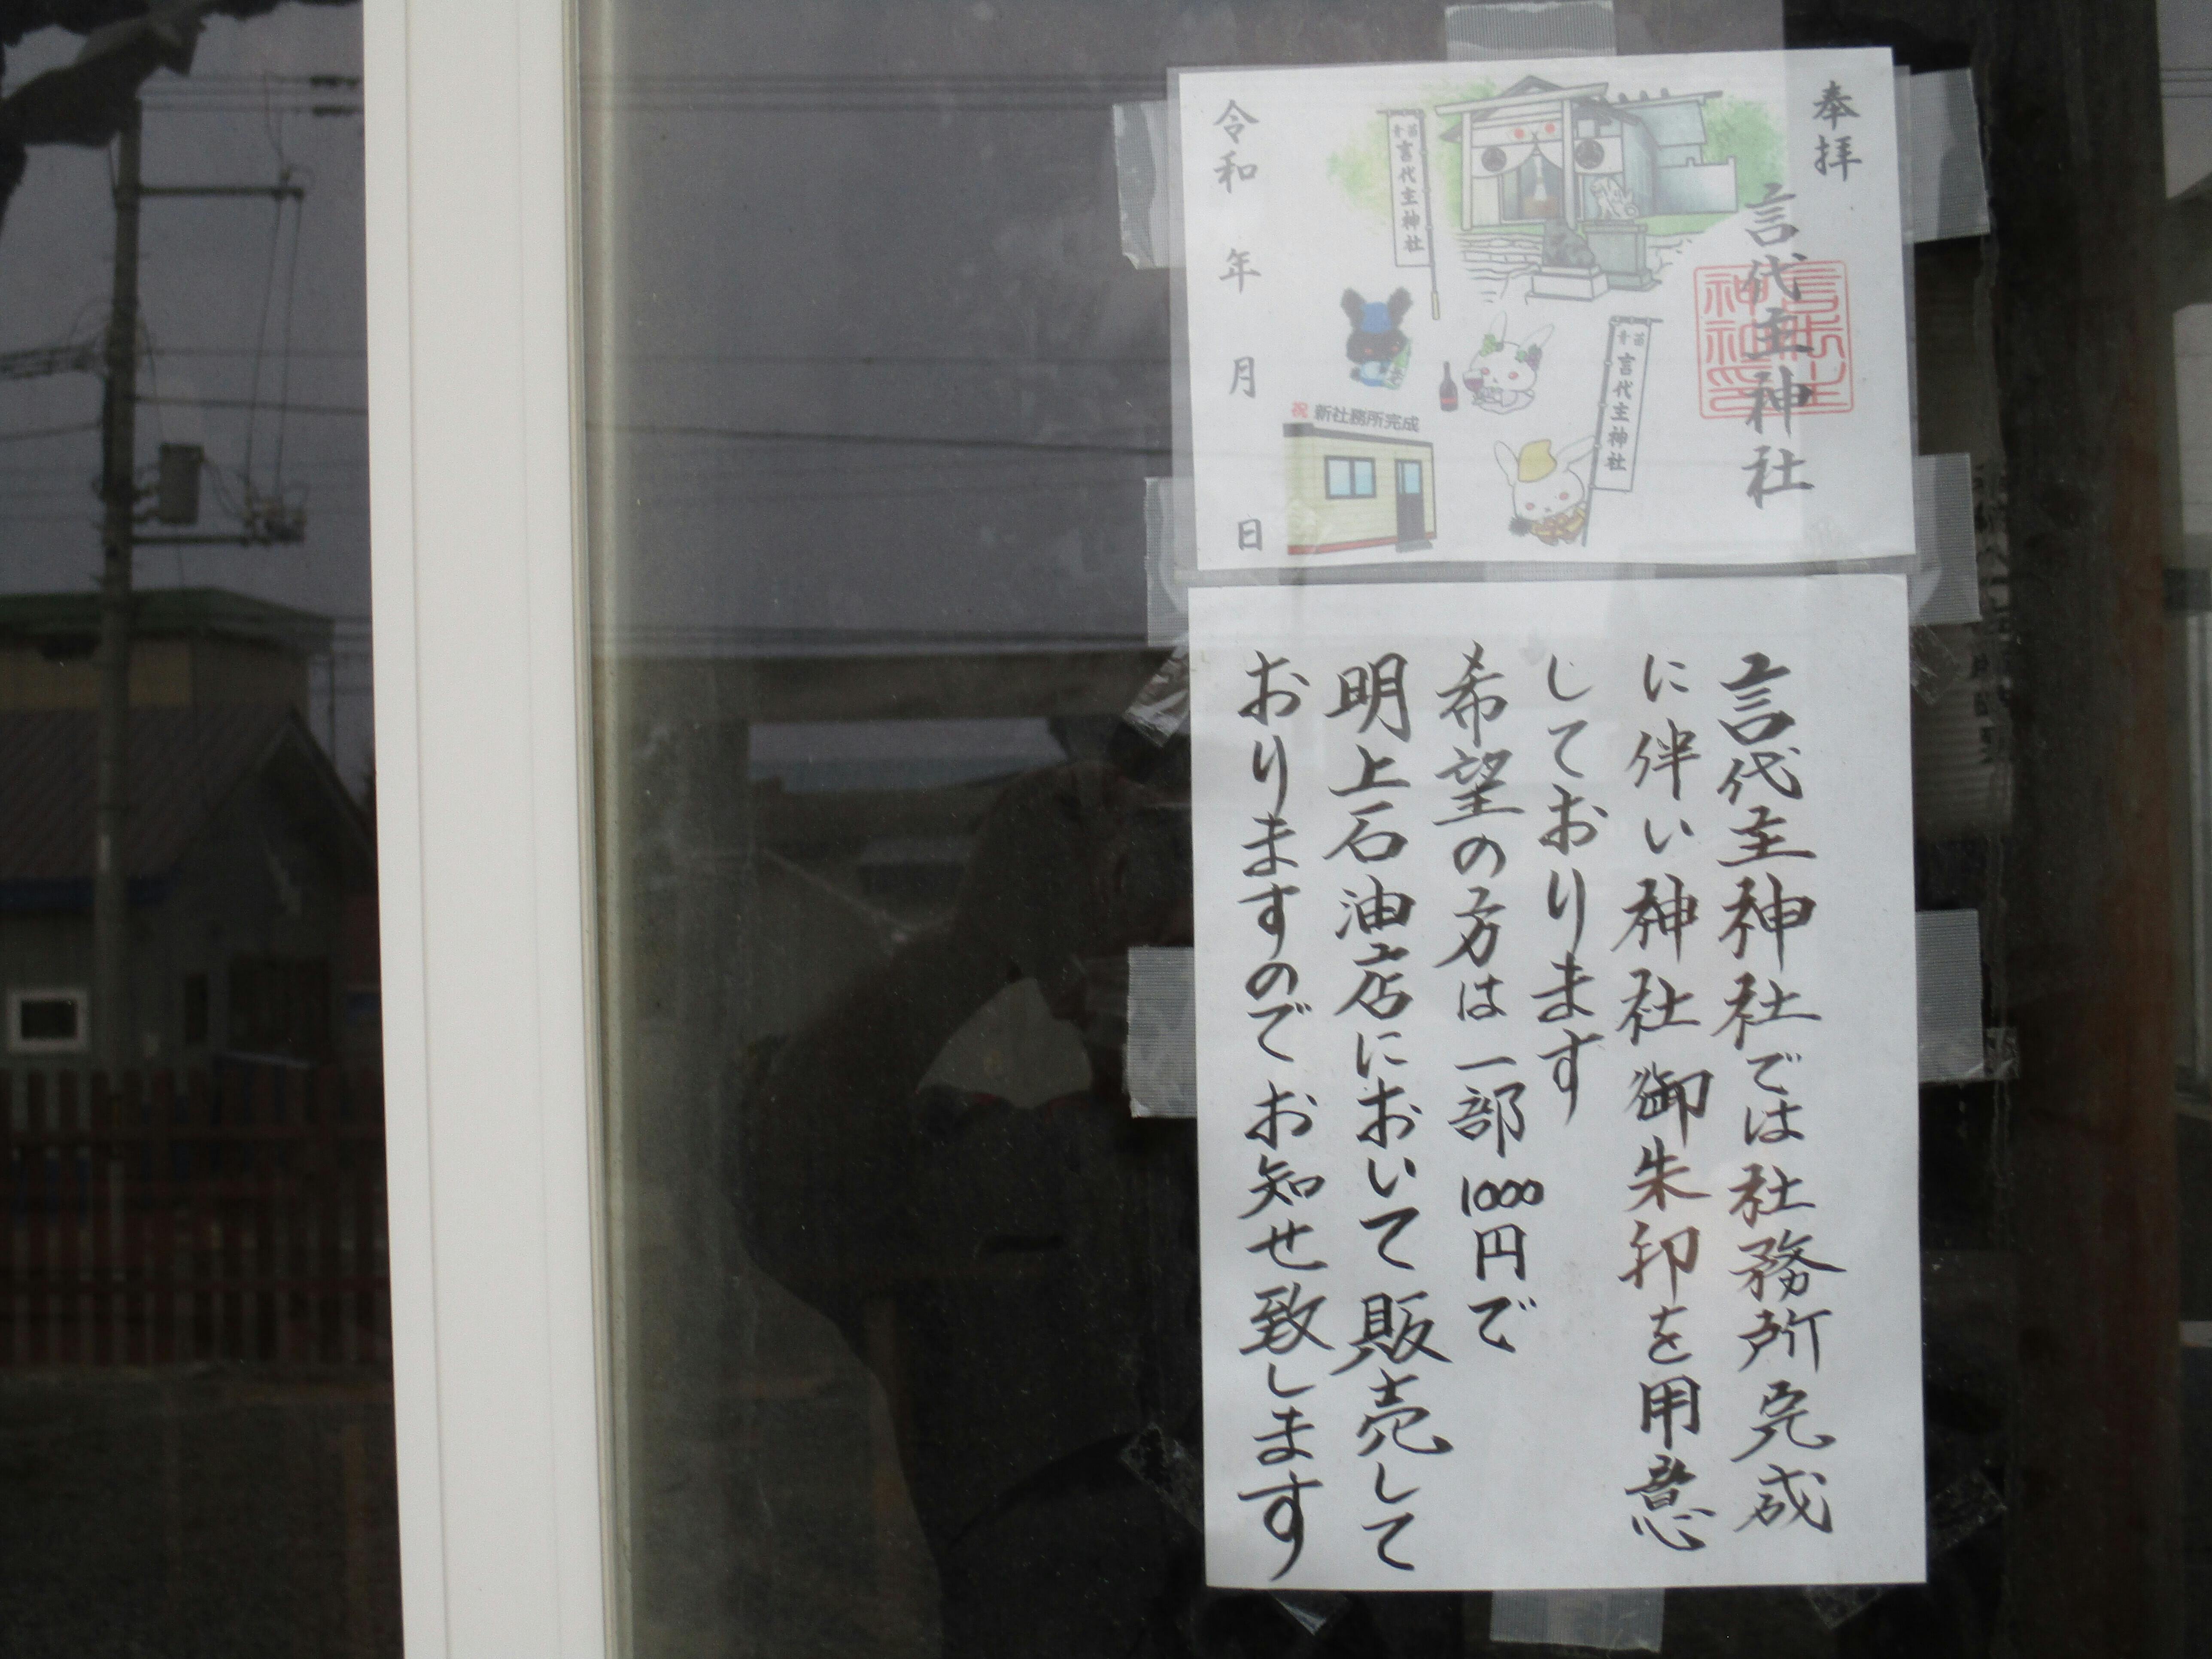 奉拝
言代主神社
言代主神社
言代主神社
祝 新社務所完成
令和 年 月 日
言代主神社では社務所完成
に伴い神社御朱印を用意
しております
希望の方は一部1000円で
明上石油店において販売して
おりますのでお知せ致します